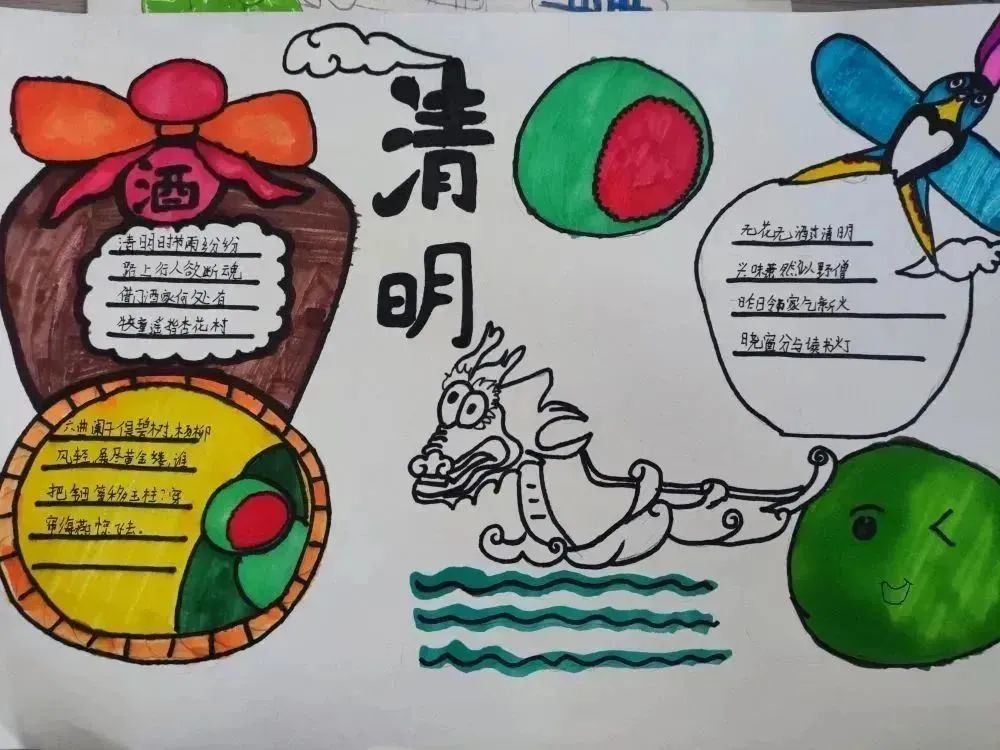 清
明
酒
清明时节雨纷纷
路上行人欲断魂
借问酒家何处有
牧童遥指杏花村
六曲阑干偎碧树,杨柳
风轻,展尽黄金缕,谁
把钿筝移玉柱?穿
帘海燕惊飞去。
无花无酒过清明
兴味萧然似野僧
昨日邻家乞新火
晓窗分与读书灯